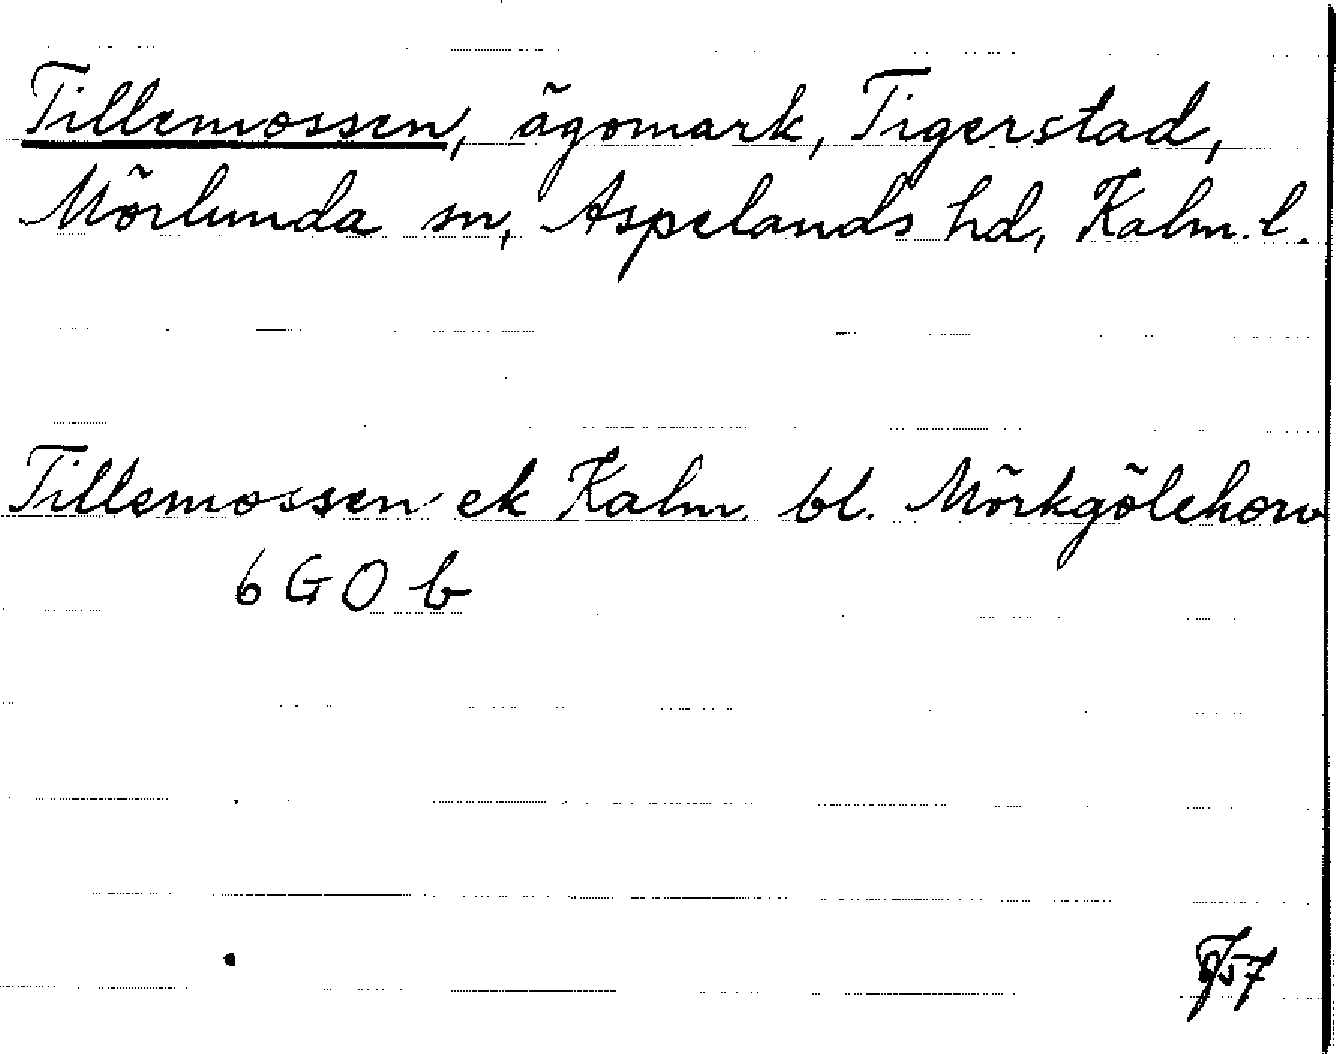 Tillemossen, ägomark, Tigerstad,
Mörlunda sn, Aspelands hd, Kalm. l.
Tillemossen ek Kalm. bl. Mörkgölehorv
6 G O b